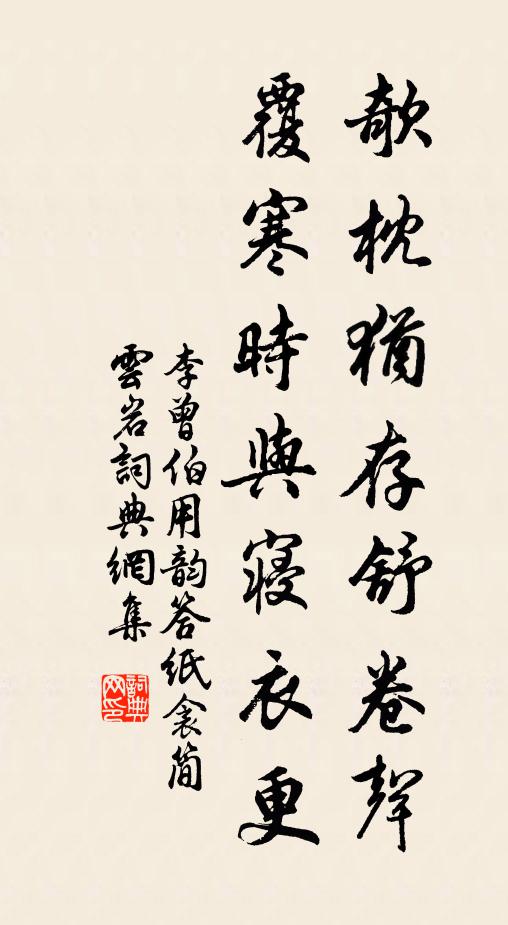 欹枕猶存舒卷聲
覆寒時與寢衣更
李曾伯用韵答紙衾簡
雲岩詞典網集
詞典
网印